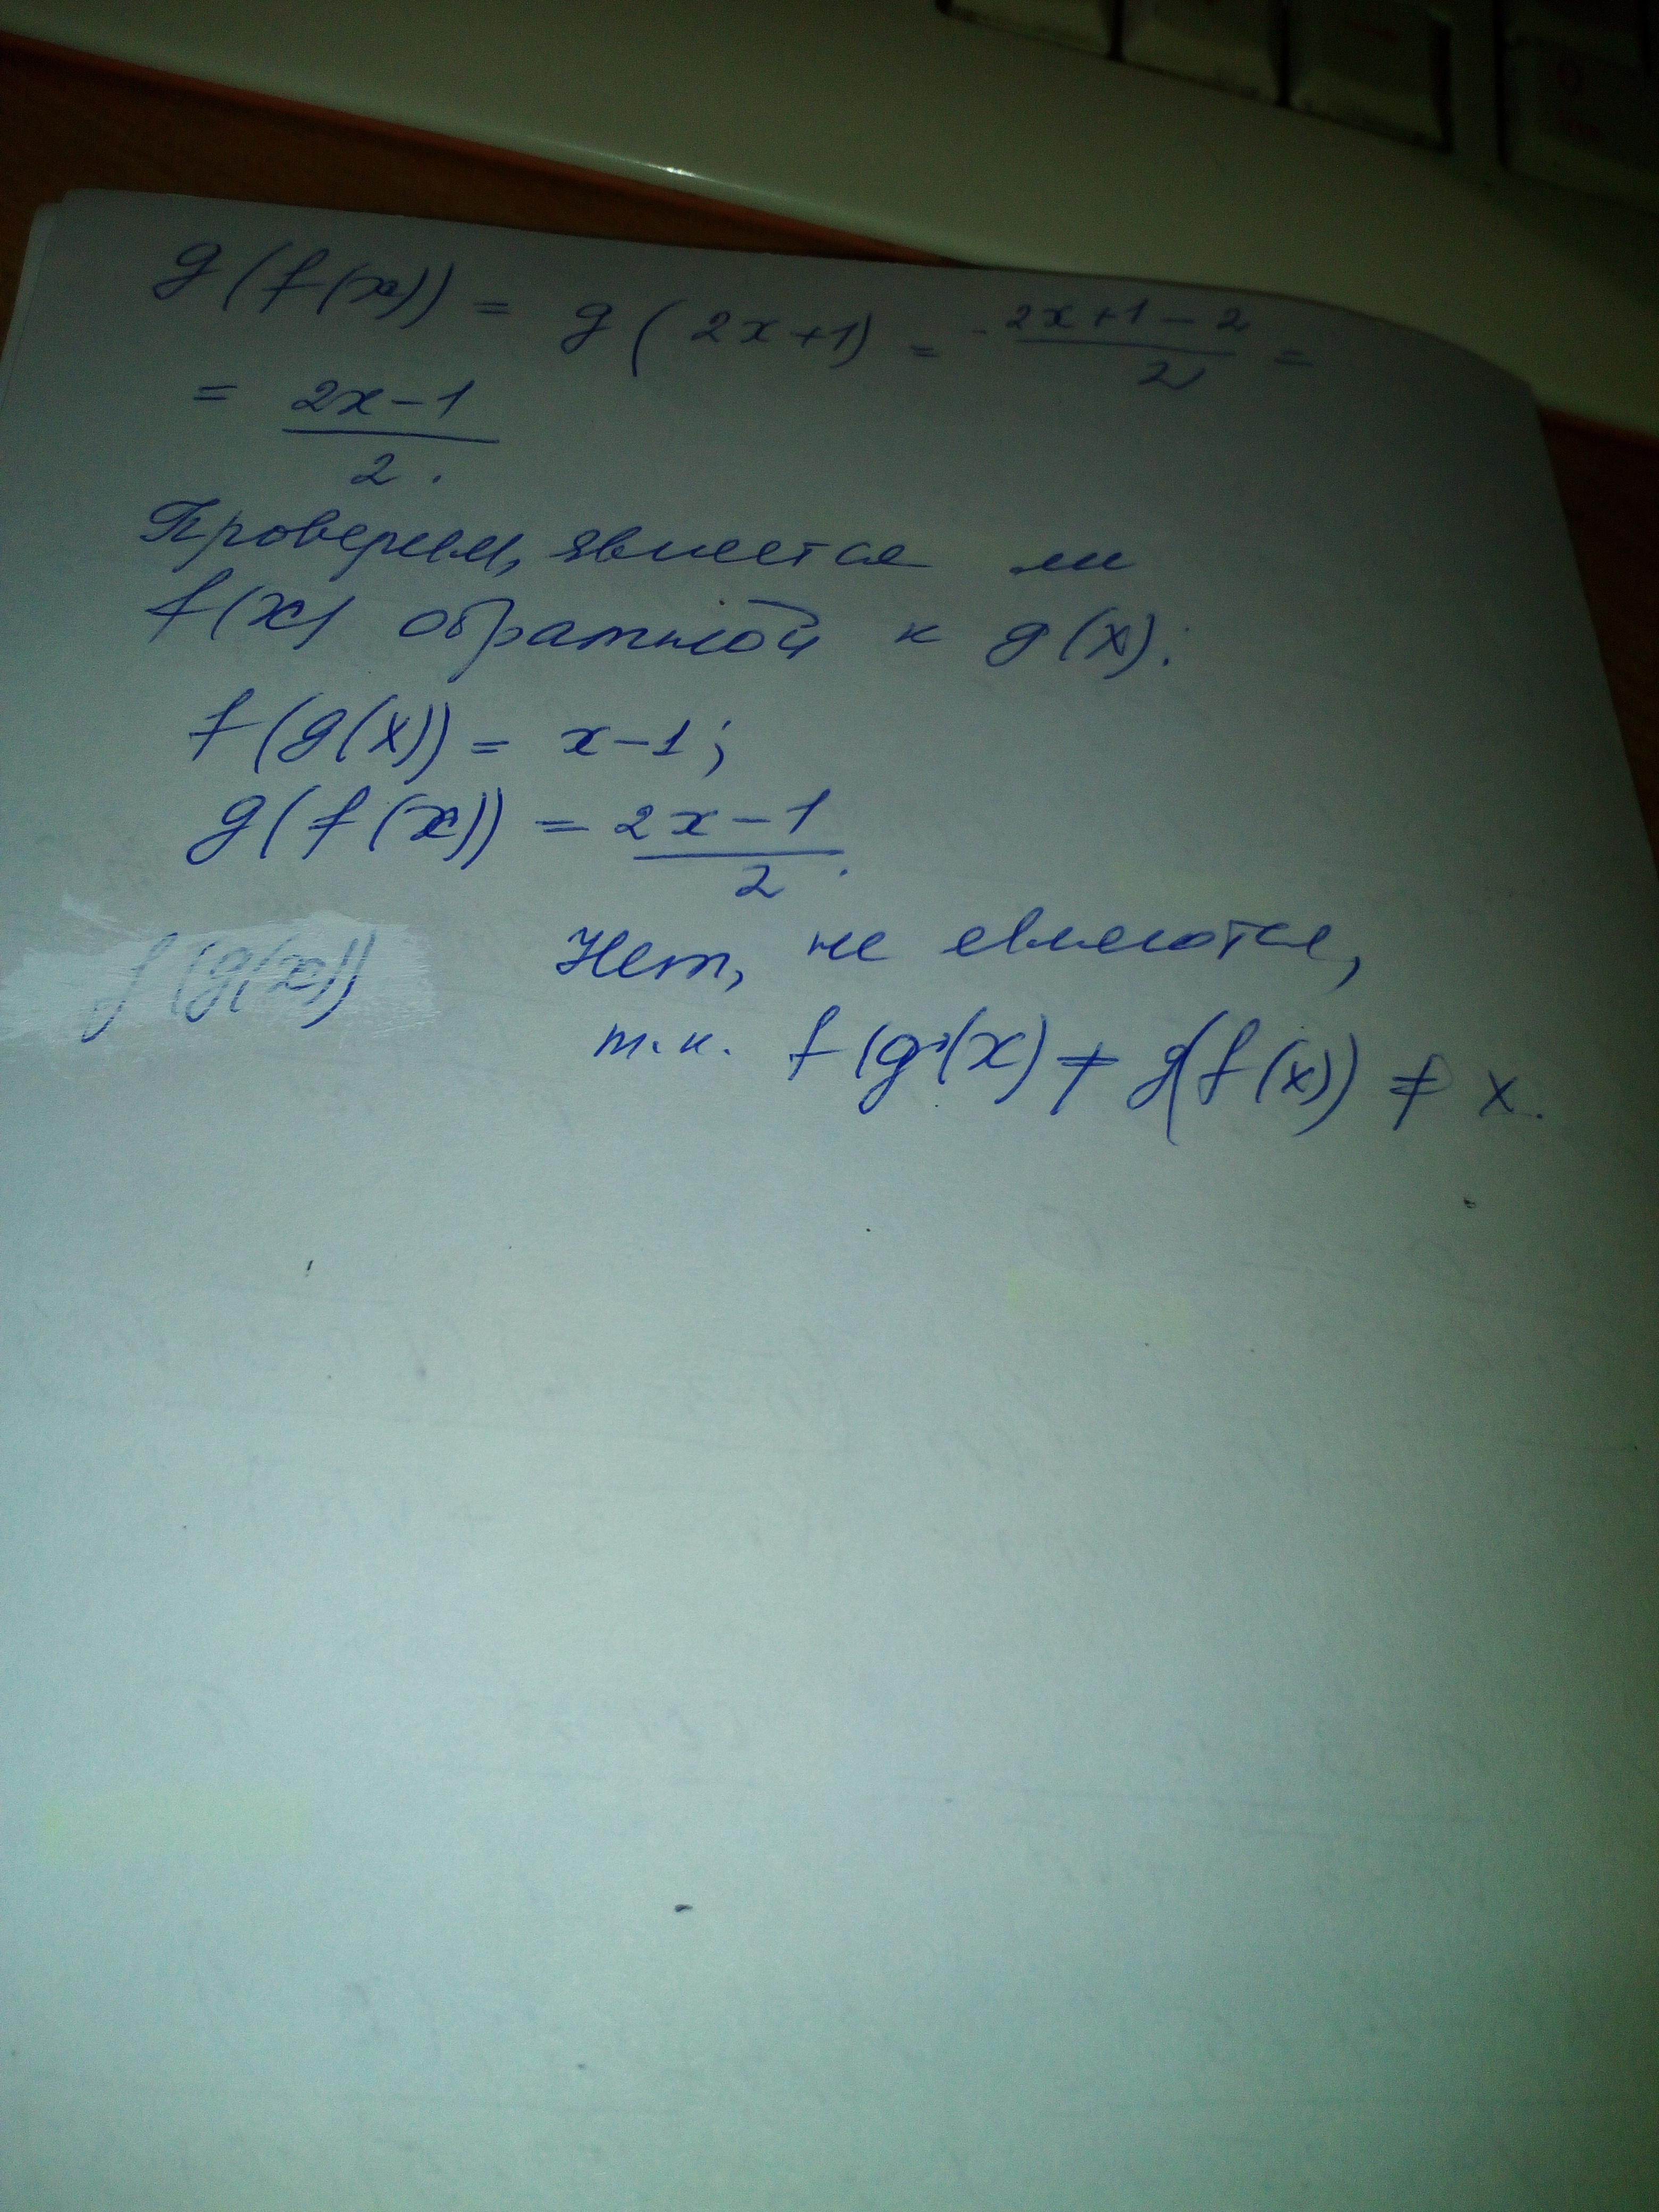 g(f(x)) = g(2x+1) = (2x+1-2)/2 =
= (2x-1)/2.
Проверим, является ли
f(x) обратной к g(x):
f(g(x)) = x-1;
g(f(x)) = (2x-1)/2.
f(g(x))
Нет, не являются,
т.к. f(g(x) ≠ g(f(x)) ≠ x.